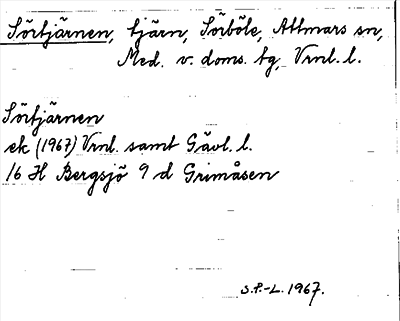 Sörtjärnen, tjärn, Sörböle, Attmars sn,
Med. v. doms. tg, Vrnl. l.
Sörtjärnen
ek (1967) Vrnl. samt Gävl. l.
16 H Bergsjö 9 d Grimåsen
S.P.-L. 1967.